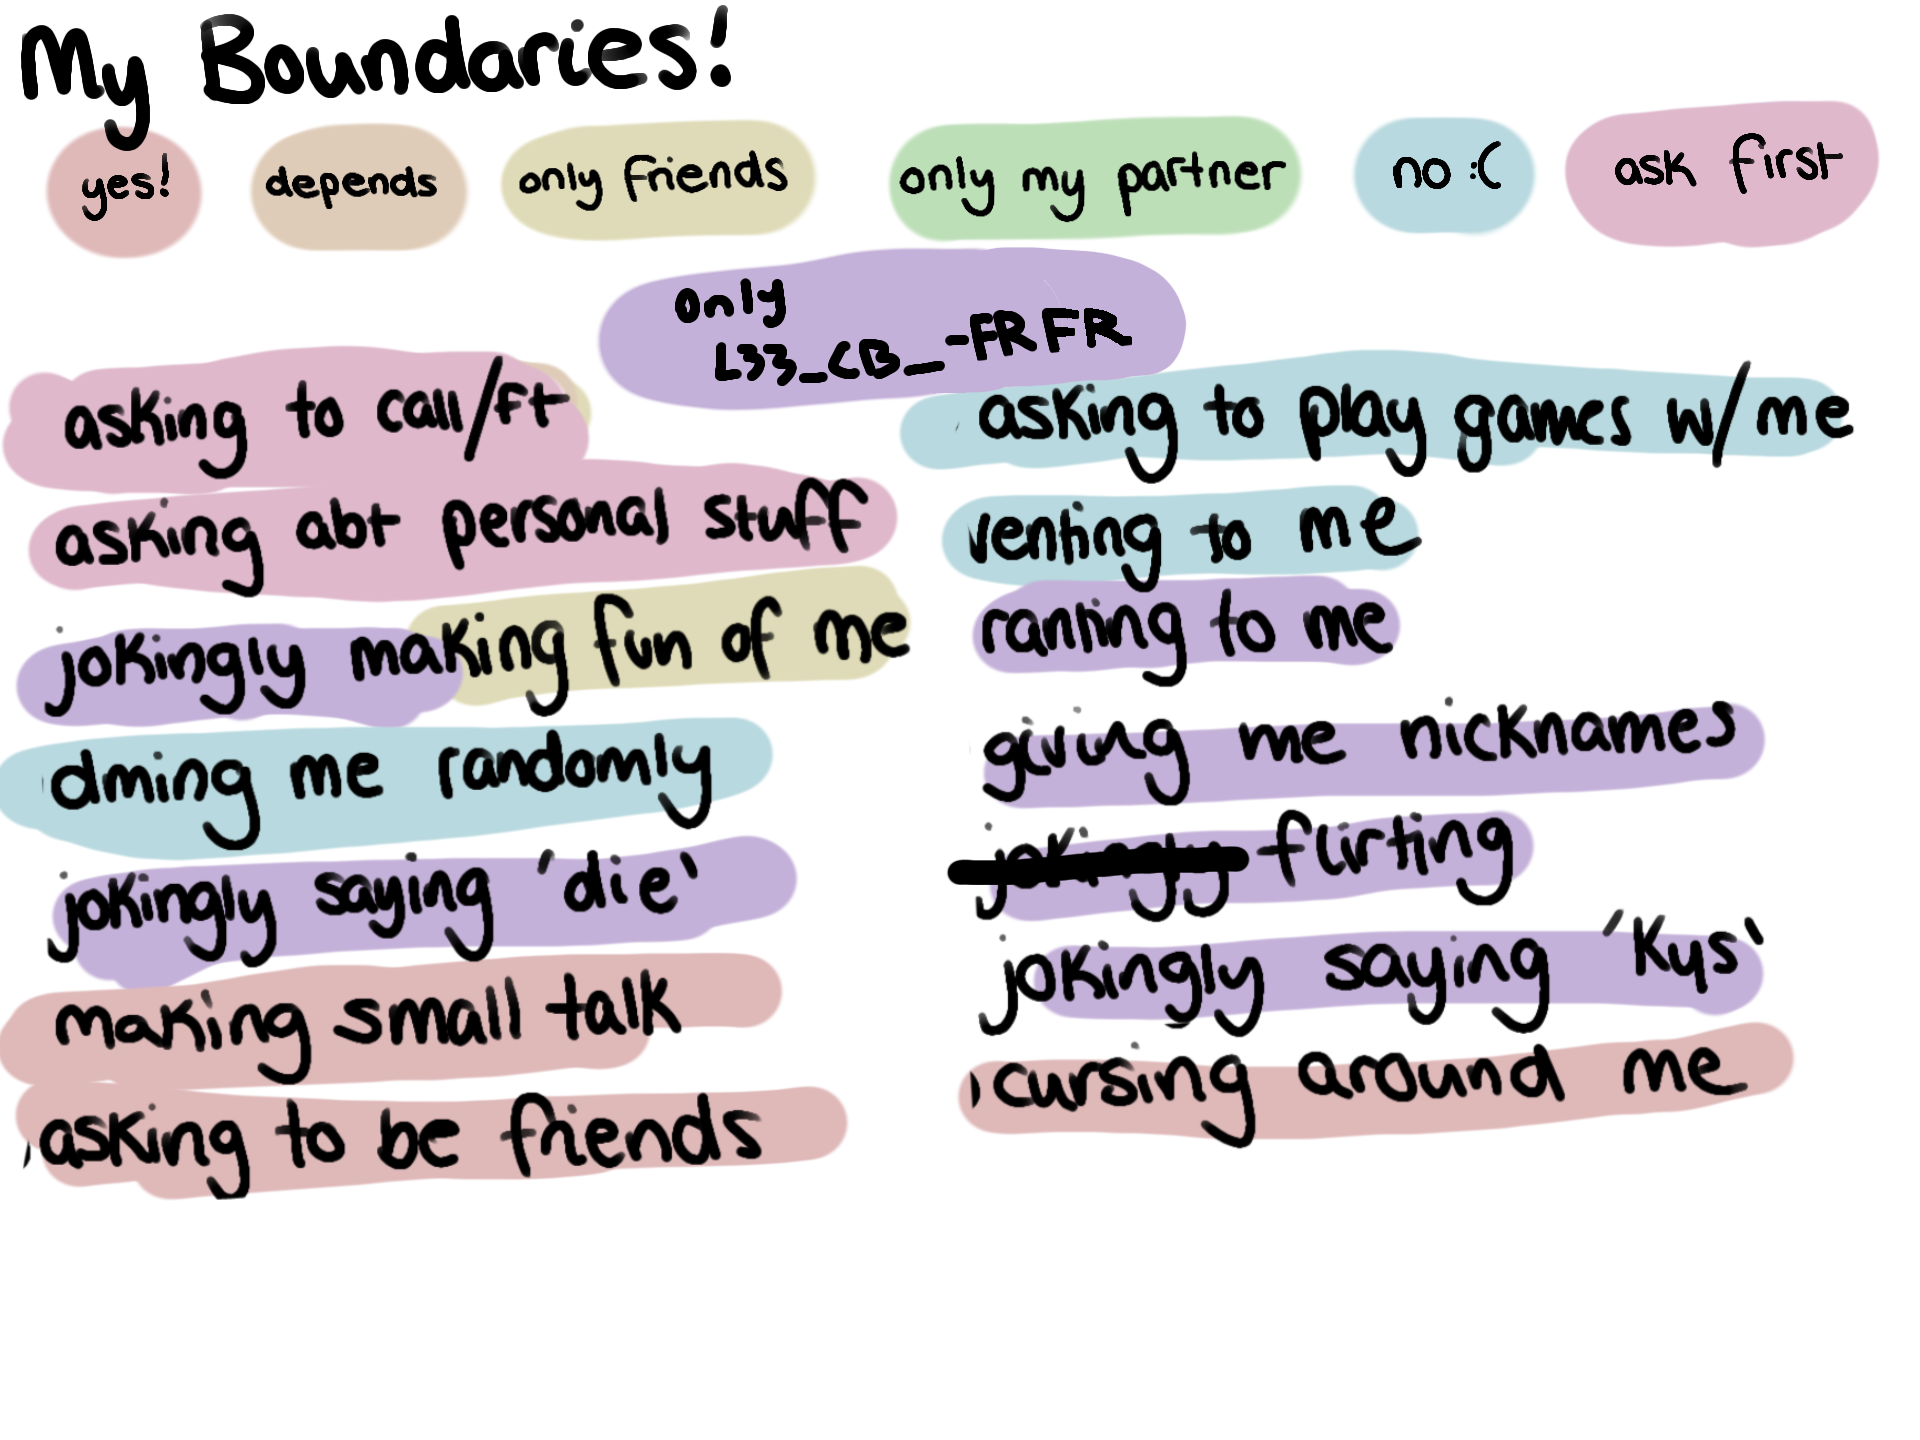 My Boundaries!
yes! depends only friends only my partner no :( ask first
only
L33_CB__-FRFR
asking to call/ft
asking abt personal stuff
jokingly making fun of me
dming me randomly
jokingly saying 'die'
making small talk
asking to be friends
asking to play games w/ me
venting to me
ranting to me
giving me nicknames
jokingly flirting
jokingly saying 'kys'
cursing around me